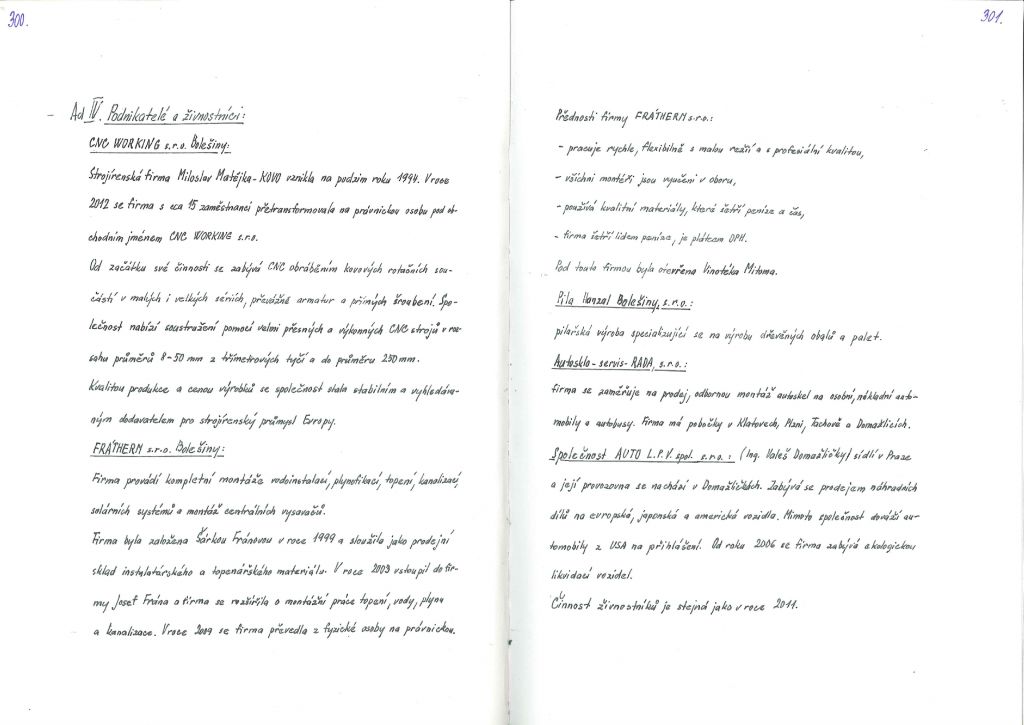 300.
- Ad IV. Podnikatelé a živnostníci:
CNC WORKING s.r.o. Bolešiny:
Strojírenská firma Miloslav Matějka - KOVO vznikla na podzim roku 1994. V roce
2012 se firma s cca 15 zaměstnanci přetransformovala na právnickou osobu pod ob-
chodním jménem CNC WORKING s.r.o.
Od začátku své činnosti se zabývá CNC obráběním kovových rotačních sou-
částí v malých i velkých sériích, převážně armatur a přímých šroubení. Spo-
lečnost nabízí soustružení pomocí velmi přesných a výkonných CNC strojů v roz-
sahu průměrů 8-50 mm z třímetrových tyčí a do průměru 250 mm.
Kvalitou produkce a cenou výrobků se společnost stala stabilním a vyhledáva-
ným dodavatelem pro strojírenský průmysl Evropy.
FRÁTHERM s.r.o. Bolešiny:
Firma provádí kompletní montáže vodoinstalací, plynofikací, topení, kanalizací,
solárních systémů a montáž centrálních vysavačů.
Firma byla založena Šárkou Fránovou v roce 1999 a sloužila jako prodejní
sklad instalatérského a topenářského materiálu. V roce 2003 vstoupil do fir-
my Josef Frána a firma se rozšířila o montážní práce topení, vody, plynu
a kanalizace. V roce 2009 se firma převedla z fyzické osoby na právnickou.
301.
Přednosti firmy FRÁTHERM s.r.o.:
- pracuje rychle, flexibilně s malou režií a s profesiální kvalitou,
- všichni montéři jsou vyučeni v oboru,
- používá kvalitní materiály, které šetří peníze a čas,
- firma šetří lidem peníze, je plátcem DPH.
Pod touto firmou byla otevřena Vinotéka Mitoma.
Pila Hanzal Bolešiny, s.r.o.:
pilařská výroba specializující se na výrobu dřevěných obalů a palet.
Autosklo - servis - RADA, s.r.o.:
firma se zaměřuje na prodej, odbornou montáž autoskel na osobní, nákladní auto-
mobily a autobusy. Firma má pobočky v Klatovech, Plzni, Tachově a Domažlicích.
Společnost AUTO L.P.V. spol. s.r.o.: (Ing. Valeš Domažličky) sídlí v Praze
a její provozovna se nachází v Domažličkách. Zabývá se prodejem náhradních
dílů na evropská, japonská a americká vozidla. Mimoto společnost dováží au-
tomobily z USA na přihlášení. Od roku 2006 se firma zabývá ekologickou
likvidací vozidel.
Činnost živnostníků je stejná jako v roce 2011.